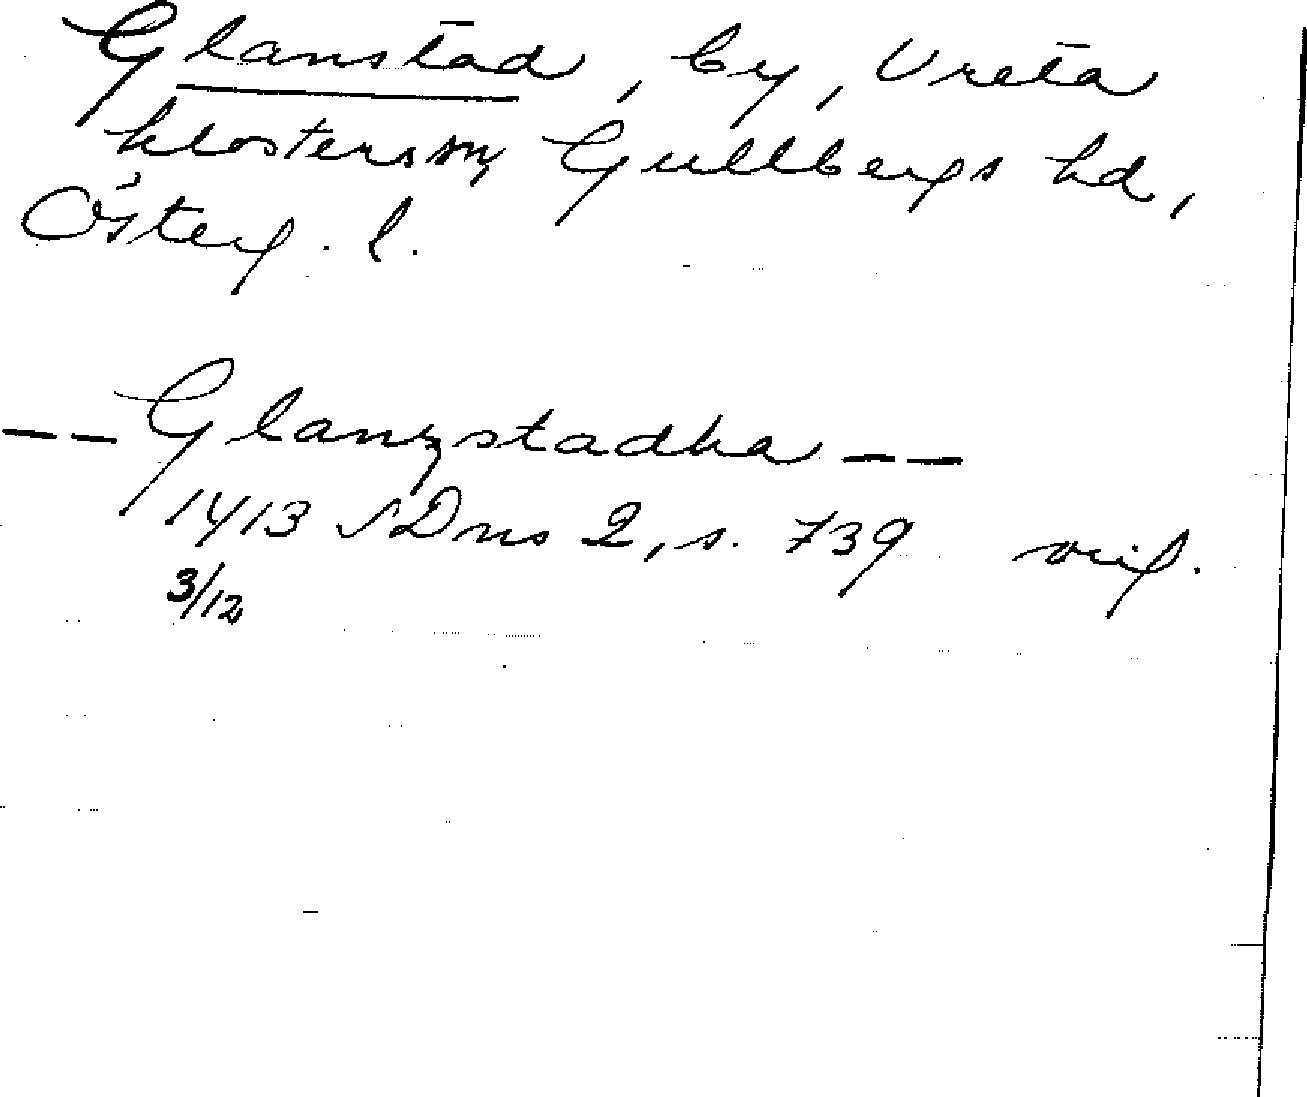 Glanstad, by, Vreta
klosters sn, Gullbergs hd,
Österg. l.
-- Glanzstadha --
1413 SDns 2, s. 739 orig.
3/12